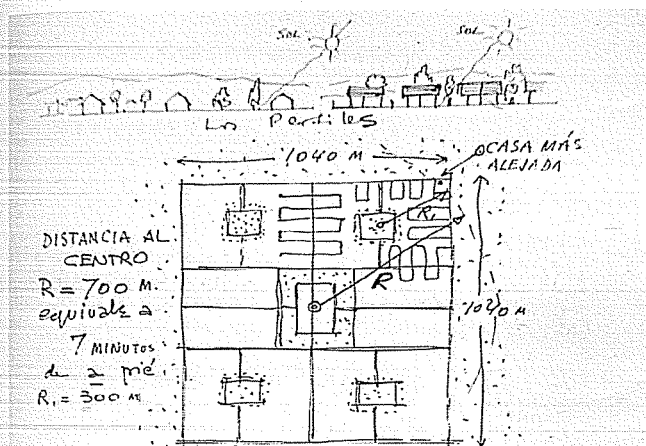 SOL
SOL
Los Perfiles
1040 M
CASA MÁS
ALEJADA
R₁
DISTANCIA AL
CENTRO
R = 700 M.
equivale a
7 MINUTOS
de a pié
R₁ = 300 M
R
1040 M